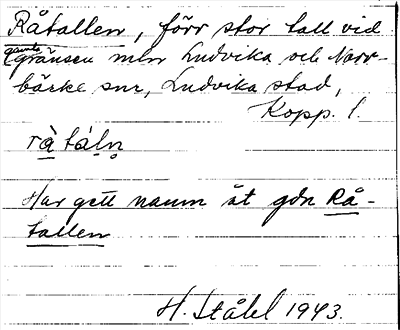 Råtallen, förr stor tall vid
gamla
gränsen mln Ludvika och Norr-
bärke snr, Ludvika stad,
Kopp. l.
rå̀ táḷṇ
Har gett namn åt gdn Rå-
tallen
H. Ståhl 1943.